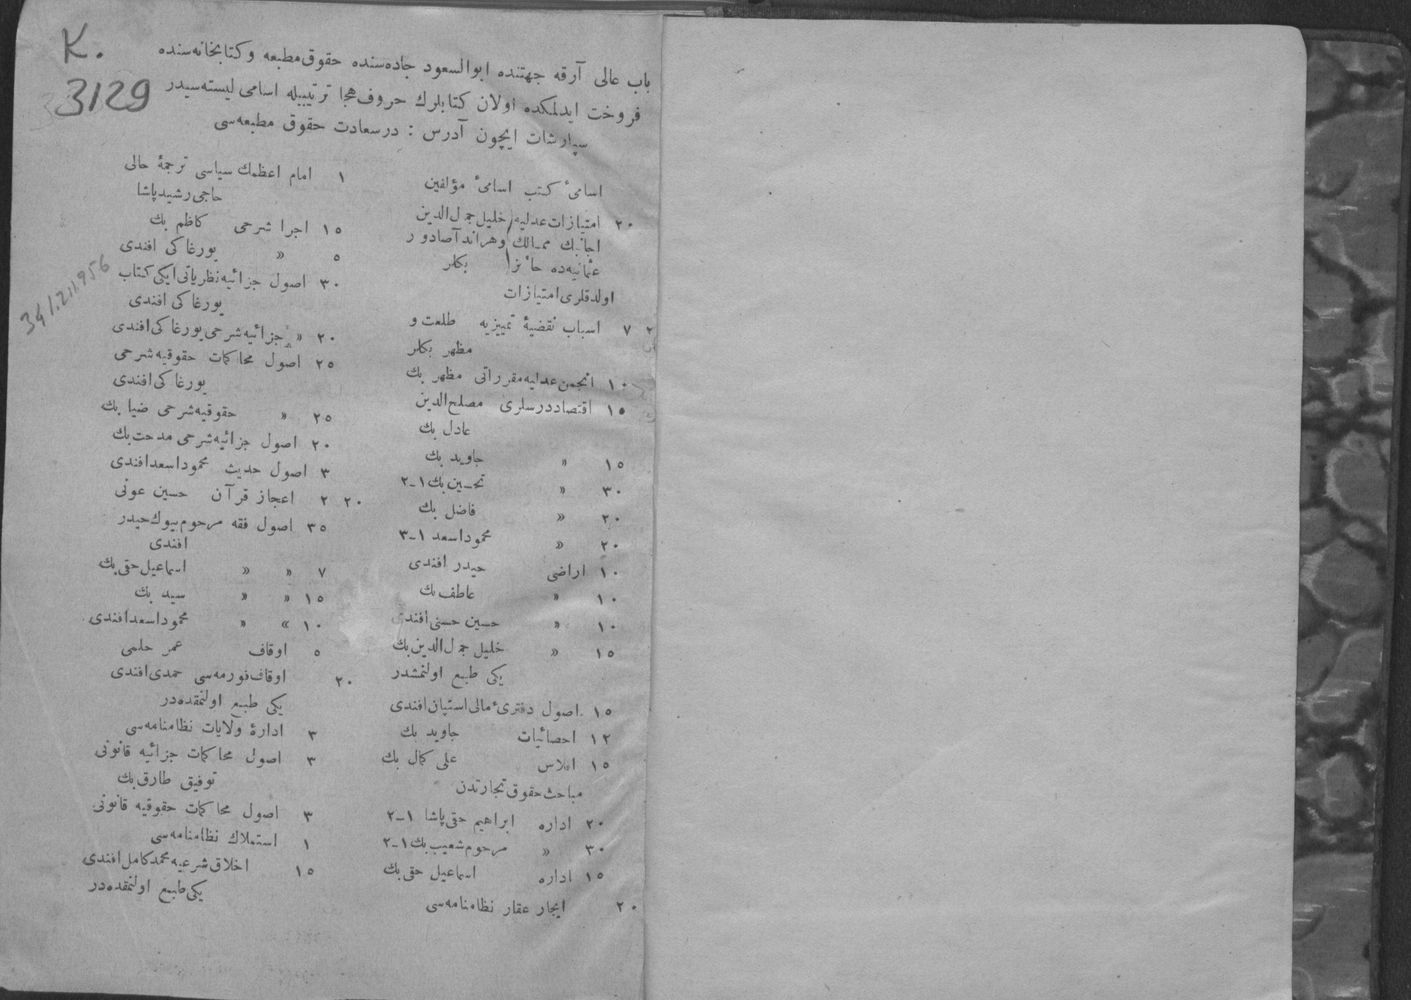 K.
3129
341.211.956
باب عالی آرقه جهتنده ابوالسعود جاده‌سنده حقوق مطبعه و کتابخانه‌سنده
فروخت ایدلمکده اولان کتابلرك حروف هجا ترتیبیله اسامی لیسته‌سیدر
سپارشات ایچون آدرس : درسعادت حقوق مطبعه‌سی
اسامیٔ کتب اسامیٔ مؤلفین
۲۰ امتیازات عدلیه خلیل جمال‌الدین
اجانبك ممالك وهراند آصادور
عثمانیه‌ده حائز بکلر
اولدقلری امتیازات
۷ اسباب نقضیهٔ تمییزیه طلعت و
مظهر بکلر
۱۰ انجمن عدلیه مقرراتی مظهر بك
۱۵ اقتصاد درسلری مصلح‌الدین
عادل بك
۱۵ » جاوید بك
۳۰ » تحسین بك ۱-۲
۲۰ » فاضل بك
۲۰ » محمود اسعد ۱-۳
۱۰ اراضی حیدر افندی
۱۰ » عاطف بك
۱۰ » حسین حسنی افندی
۱۵ » خلیل جمال‌الدین بك
یکی طبع اولنمشدر
۱۵ اصول دفتریٔ مالی استپان افندی
۱۲ احصائیات جاوید بك
۱۵ افلاس علی کمال بك
مباحث حقوق تجارتدن
۲۰ اداره ابراهیم حقی پاشا ۱-۲
۳۰ » مرحوم شعیب بك ۱-۲
۱۵ اداره اسماعیل حقی بك
۲۰ ایجار عقار نظامنامه‌سی
۱ امام اعظمك سیاسی ترجمهٔ حالی
حاجی رشید پاشا
۱۵ اجرا شرحی کاظم بك
۵ » یورغاکی افندی
۳۰ اصول جزائیه نظریاتی ایکی کتاب
یورغاکی افندی
۲۰ » جزائیه شرحی یورغاکی افندی
۲۵ اصول محاکمات حقوقیه شرحی
یورغاکی افندی
۲۵ » حقوقیه شرحی ضیا بك
۲۰ اصول جزائیه شرحی مدحت بك
۳ اصول حدیث محمود اسعد افندی
۲۰ ۲ اعجاز قرآن حسین عونی
۳۵ اصول فقه مرحوم بیوك حیدر
افندی
۷ » » اسماعیل حقی بك
۱۵ » » سید بك
۱۰ » » محمود اسعد افندی
۵ اوقاف عمر حلمی
۲۰ اوقاف فورمه‌سی حمدی افندی
یکی طبع اولنمقده‌در
۳ ادارهٔ ولایات نظامنامه‌سی
۳ اصول محاکمات جزائیه قانونی
توفیق طارق بك
۳ اصول محاکمات حقوقیه قانونی
۱ استملاك نظامنامه‌سی
۱۵ اخلاق شرعیه محمد کامل افندی
یکی طبع اولنمقده‌در